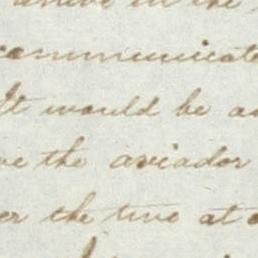 arrive in the
communicate
It would be a
ve the aviador
er the two at